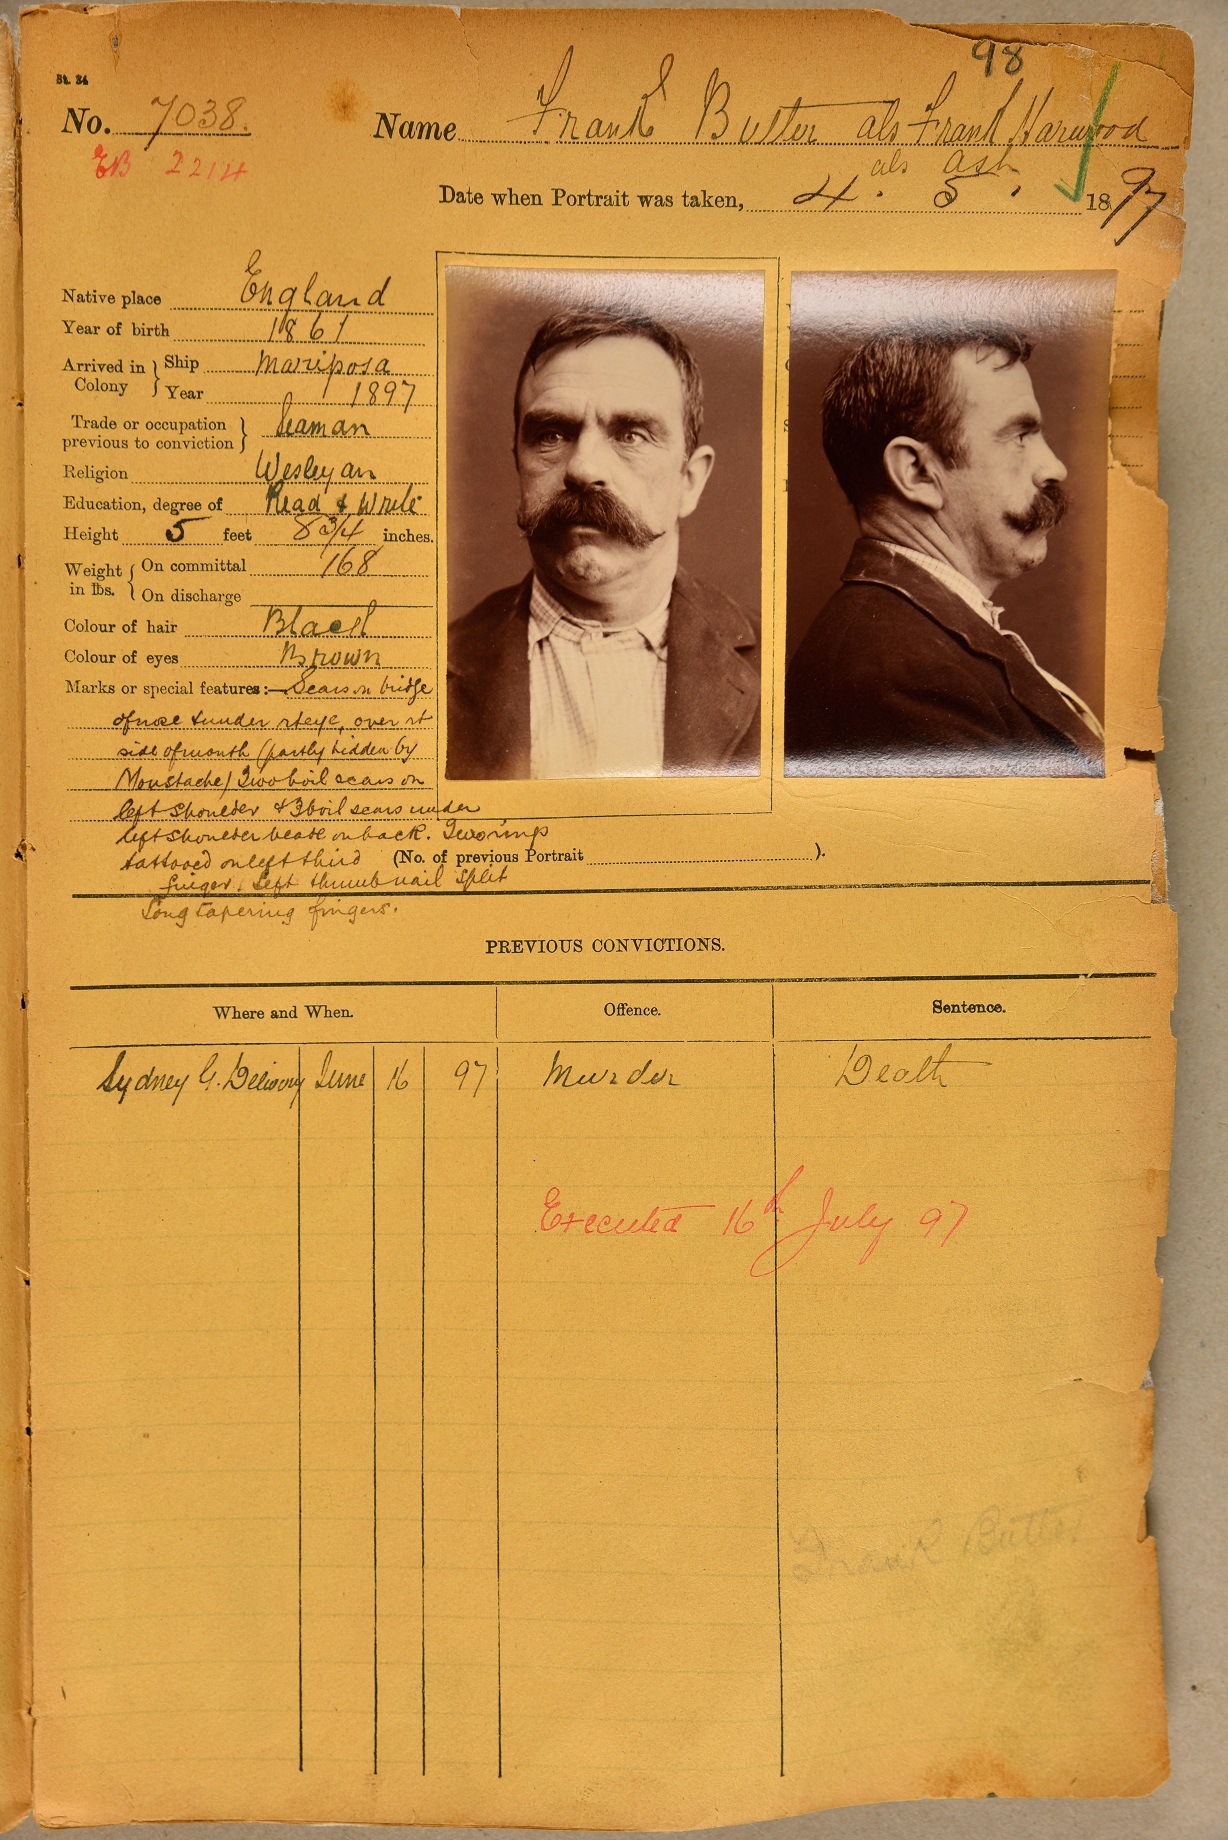 98
St. 24
No. 7038. Name Frank Butter als Frank Harwood
als Ash
EB 2214
Date when Portrait was taken, 4. 5. 1897
Native place England
Year of birth 1861
Arrived in Colony } Ship Mariposa
Year 1897
Trade or occupation previous to conviction } Seaman
Religion Wesleyan
Education, degree of Read & Write
Height 5 feet 8 3/4 inches.
Weight in lbs. { On committal 168
On discharge
Colour of hair Black
Colour of eyes Brown
Marks or special features:— Scars on bridge
of nose & under rt eye, over rt
side of mouth (partly hidden by
Moustache) Two boil scars on
left shoulder & 3 boil scars under
left shoulder blade on back. Two rings
tattooed on left third (No. of previous Portrait ).
finger. Left thumb nail split
Long tapering fingers.
PREVIOUS CONVICTIONS.
Where and When. Offence. Sentence.
Sydney G. Delivery June 16 97 Murder Death
Executed 16th July 97
Frank Butter